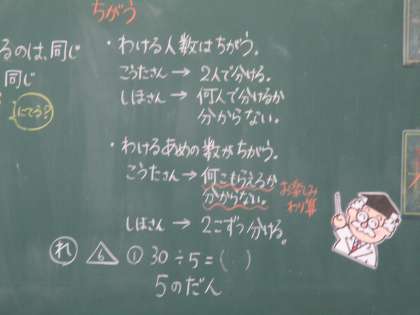 ちがう
るのは、同じ
同じ
にてる?
・わける人数はちがう。
こうたさん → 2人で分ける。
しほさん → 何人で分けるか
分からない。
・わけるあめの数がちがう。
こうたさん → 何こもらえるか
分からない。
お楽しみ
わり算
しほさん → 2こずつ分ける。
れ 6 ① 30÷5=( )
5のだん